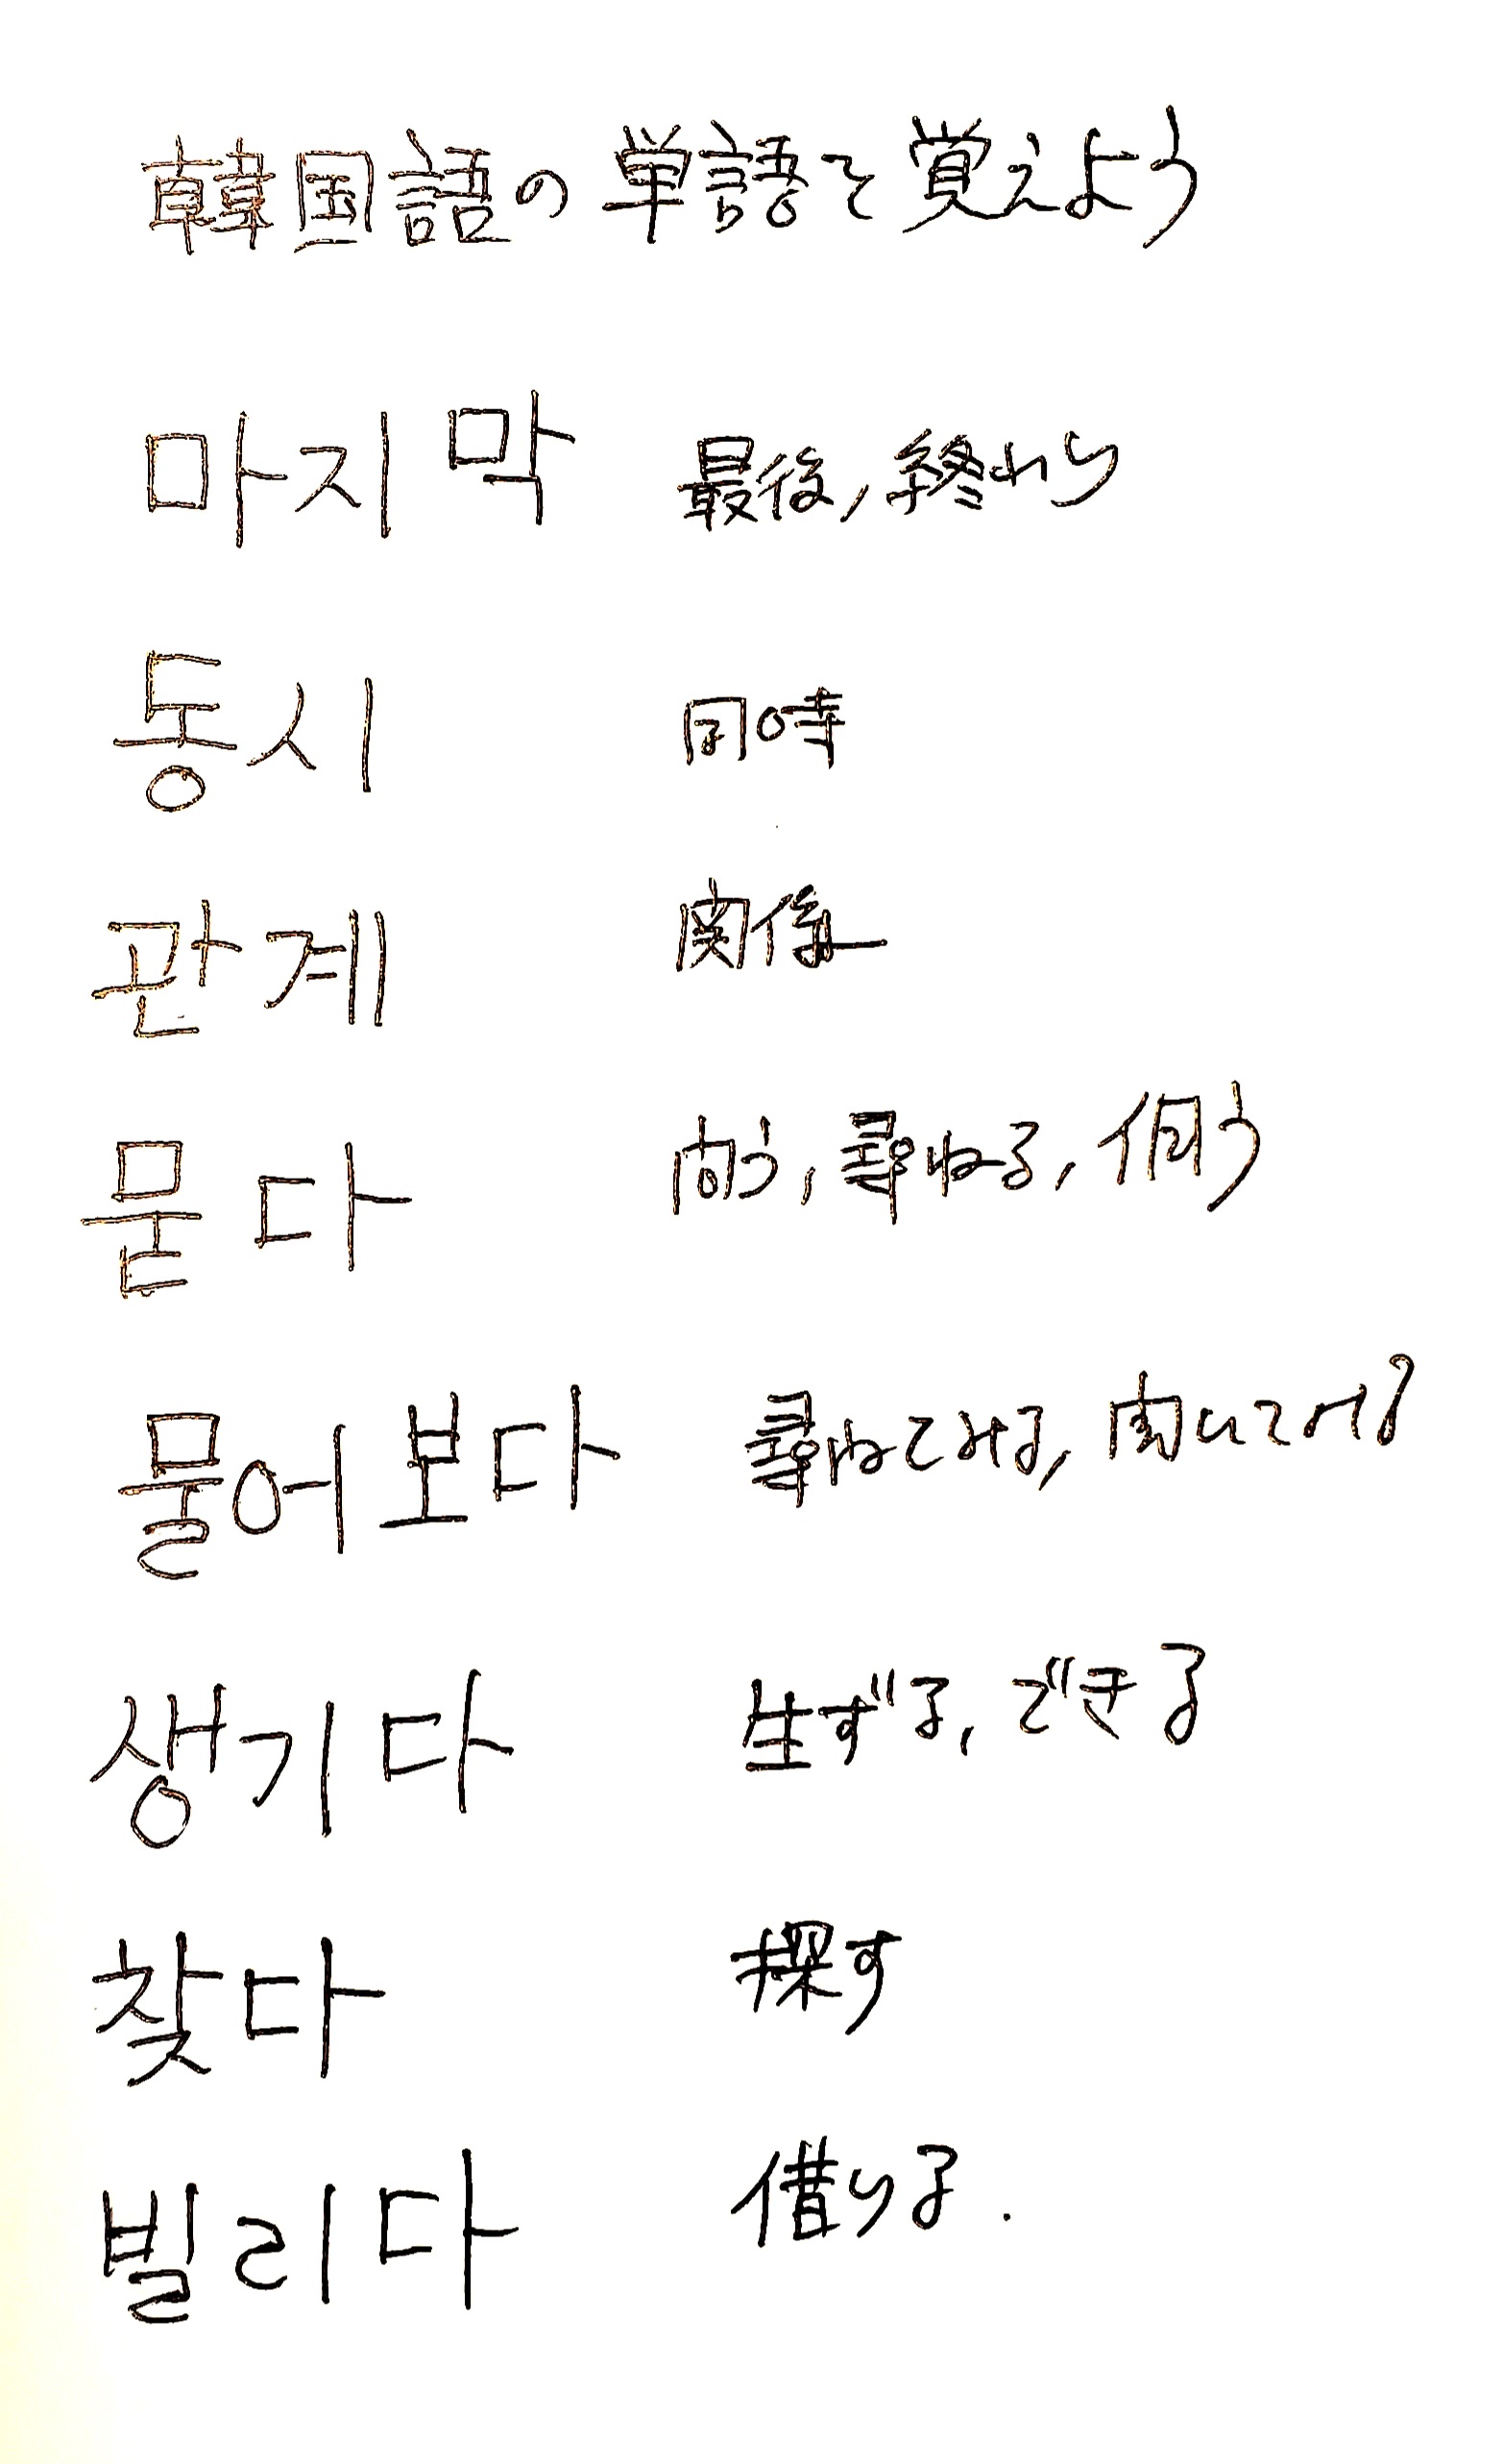 韓国語の単語を覚えよう
마지막 最後, 終わり
동시 同時
관계 関係
묻다 問う, 尋ねる, 伺う
물어보다 尋ねてみる, 聞いてみる
생기다 生ずる, できる
찾다 探す
빌리다 借りる.